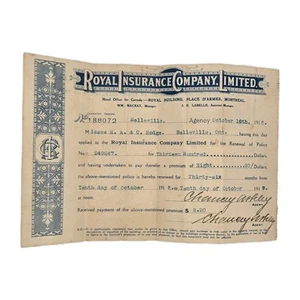 ROYAL INSURANCE COMPANY, LIMITED
Head Office for Canada—ROYAL BUILDING, PLACE D'ARMES, MONTREAL.
WM. MACKAY, Manager. J. H. LABELLE, Assistant Manager.
No. 188072 Belleville, Agency October 10th, 191
Misses H. A. & C. Hodge. Belleville, Ont. having this day
remitted to the ROYAL INSURANCE COMPANY LIMITED for the Renewal of Policy
to Thirteen Hundred Dollars
and having undertaken to pay a premium of Eight Dollars
the above-mentioned policy is hereby renewed for Thirty-six months
Tenth day of October 191 to Tenth day of October 191
Chancey Ashley
AGENT.
Received payment of the above-mentioned premium $
Chancey Ashley
AGENT.